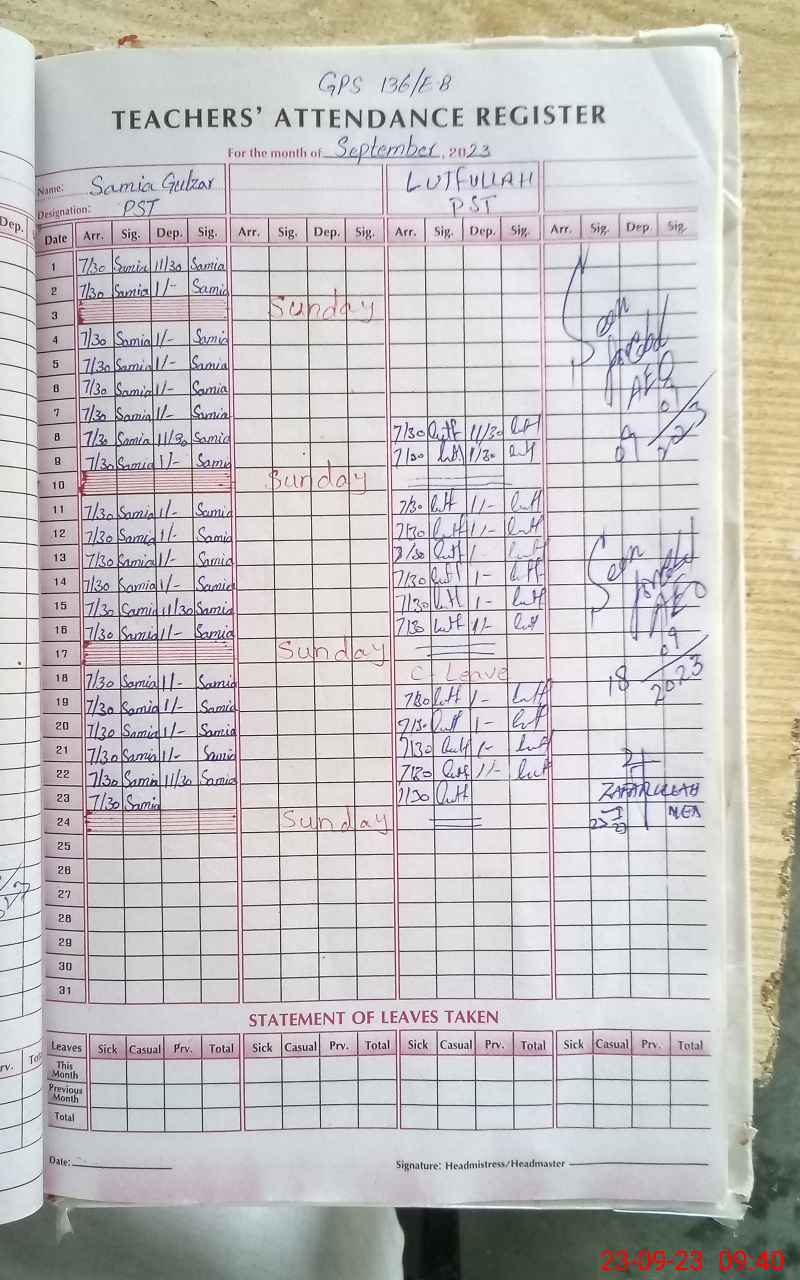 GPS 136/E.B
TEACHERS' ATTENDANCE REGISTER
For the month of September, 2023
Name: Samia Gulzar LUTFULLAH
Designation: PST PST
Dep. Date Arr. Sig. Dep. Sig. Arr. Sig. Dep. Sig. Arr. Sig. Dep. Sig. Arr. Sig. Dep. Sig.
1 7/30 Samia 11/30 Samia
2 7/30 Samia 1/- Samia
3 Sunday
4 7/30 Samia 1/- Samia
5 7/30 Samia 1/- Samia
6 7/30 Samia 1/- Samia
7 7/30 Samia 1/- Samia
8 7/30 Samia 11/30 Samia 7/30 lutf 11/30 lutf
9 7/30 Samia 1/- Samia 7/30 lutf 1/30 lutf
10 Sunday
11 7/30 Samia 1/- Samia 7/30 lutf 1/- lutf
12 7/30 Samia 1/- Samia 7/30 lutf 1/- lutf
13 7/30 Samia 1/- Samia 7/30 lutf 1- lutf
14 7/30 Samia 1/- Samia 7/30 lutf 1- lutf
15 7/30 Samia 11/30 Samia 7/30 lutf 1- lutf
16 7/30 Samia 1/- Samia 7/30 lutf 1/- lutf
17 Sunday
18 7/30 Samia 1/- Samia C-Leave
19 7/30 Samia 1/- Samia 7/30 lutf 1- lutf
20 7/30 Samia 1/- Samia 7/30 lutf 1- lutf
21 7/30 Samia 1/- Samia 7/30 lutf 1- lutf
22 7/30 Samia 11/30 Samia 7/30 lutf 1/- lutf
23 7/30 Samia 7/30 lutf
24 Sunday
25
26
27
28
29
30
31
Seen
AEO
09
Seen
AEO
18
09
2023
ZAFARULLAH
MEA
STATEMENT OF LEAVES TAKEN
Leaves Sick Casual Prv. Total Sick Casual Prv. Total Sick Casual Prv. Total Sick Casual Prv. Total
This Month
Previous Month
Total
Date: Signature: Headmistress/Headmaster
23-09-23 09:40